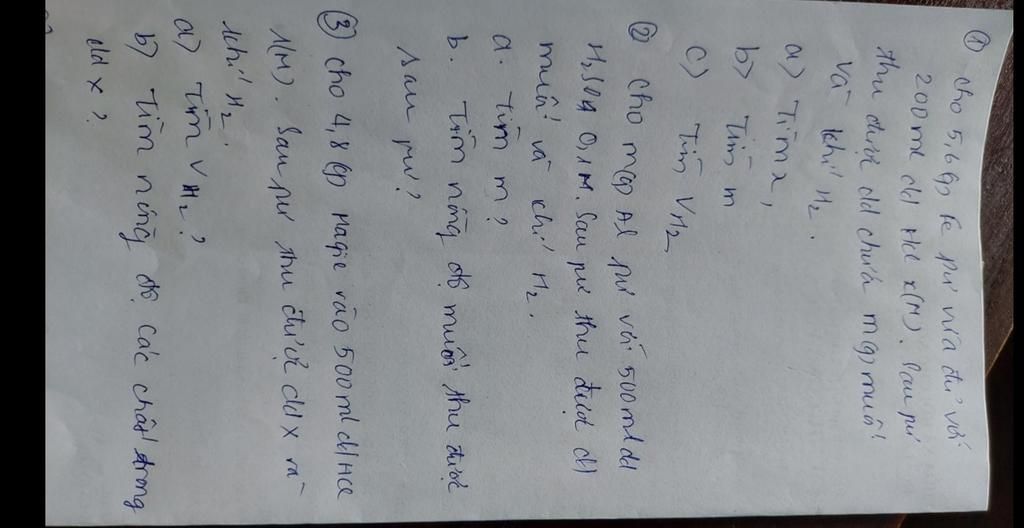 ① Cho 5,6(g) Fe pư vừa đủ với
200ml dd HCl x(M). Sau pư
thu được dd chứa m(g) muối
và khí H2.
a) Tìm x,
b) Tìm m
c) Tìm VH2
② Cho m(g) Al pư với 500ml dd
H2SO4 0,1M. Sau pư thu được dd
muối và khí H2.
a. Tìm m?
b. Tìm nồng độ muối thu được
sau pư?
③ Cho 4,8(g) Magie vào 500ml dd HCl
1(M). Sau pư thu được dd X và
khí H2.
a) Tìm VH2?
b) Tìm nồng độ các chất trong
dd X?